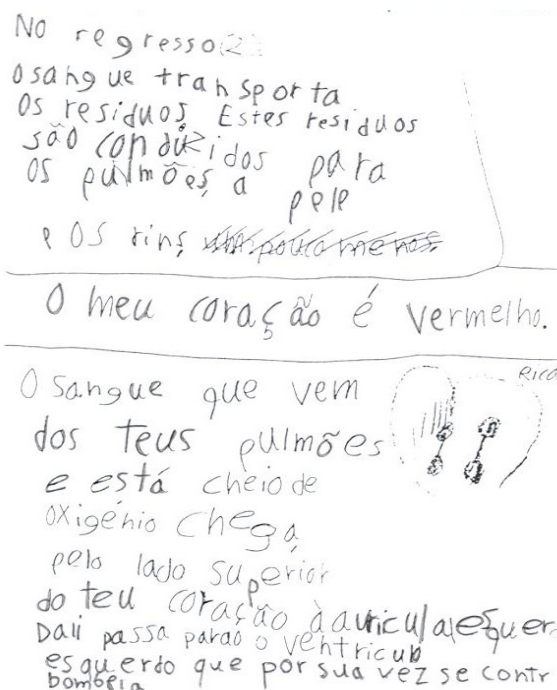 No regresso(2)
O sangue transporta
Os residuos. Estes residuos
são conduzidos para
os pulmões, a pele
e os rins, um pouco menos.
O meu coração é vermelho.
Rica
O sangue que vem
dos teus pulmões
e está cheio de
oxigénio chega
pelo lado superior
do teu coração à auricula esquer
Dali passa parao o ventriculo
esquerdo que por sua vez se contr
bombeia